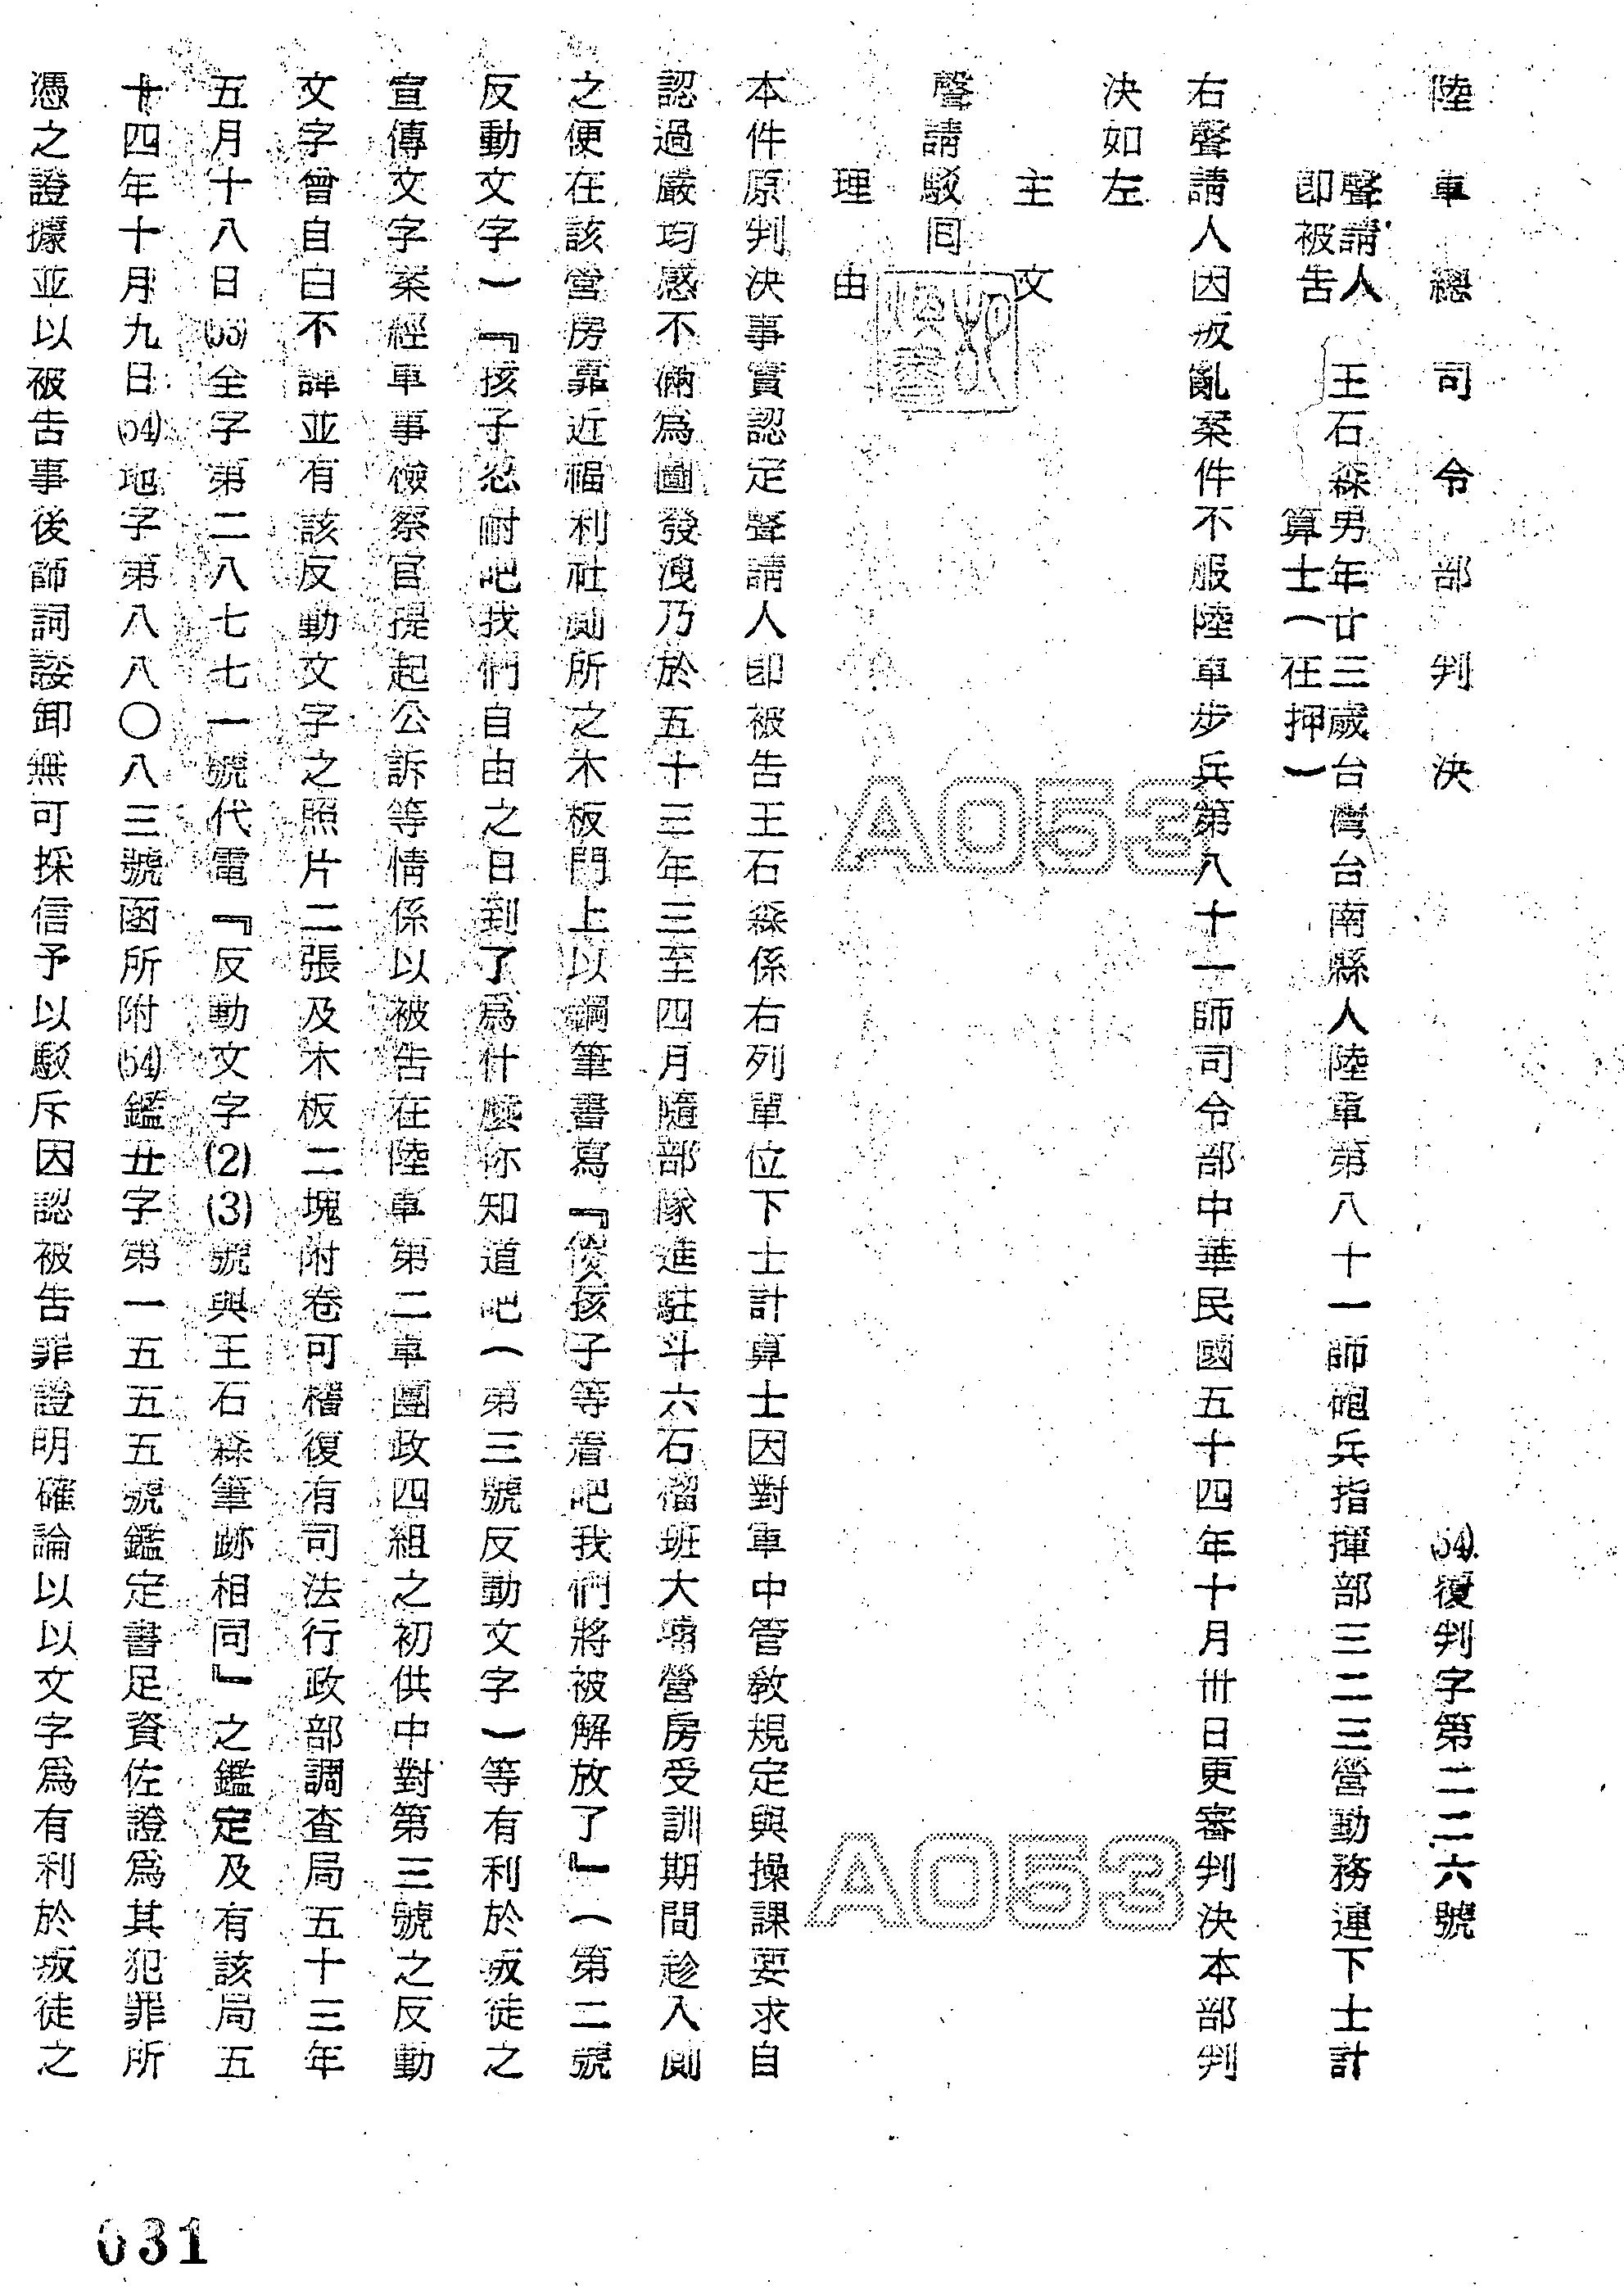 陸軍總司令部判決
(54)復判字第二二六號
聲請人
即被告
王石森男年廿三歲台灣台南縣人陸軍第八十一師砲兵指揮部三二三營勤務連下士計
算士(在押)
右聲請人因叛亂案件不服陸軍步兵第八十一師司令部中華民國五十四年十月卅日更審判決本部判
決如左
主文
聲請駁回
理由
本件原判決事實認定聲請人即被告王石森係右列單位下士計算士因對軍中管教規定與操課要求自
認過嚴均感不滿為圖發洩乃於五十三年三至四月隨部隊進駐斗六石榴班大埔營房受訓期間趁入廁
之便在該營房靠近福利社廁所之木板門上以鋼筆書寫『傻孩子等着吧我們將被解放了』(第二號
反動文字)『孩子忍耐吧我們自由之日到了為什麼你知道吧(第三號反動文字)等有利於叛徒之
宣傳文字案經軍事檢察官提起公訴等情係以被告在陸軍第二軍團政四組之初供中對第三號之反動
文字曾自白不諱並有該反動文字之照片二張及木板二塊附卷可稽復有司法行政部調查局五十三年
五月十八日(53)全字第二八七七一號代電『反動文字(2)(3)號與王石森筆跡相同』之鑑定及有該局五
十四年十月九日(54)地字第八八〇八三號函所附(54)鑑廿字第一五五五號鑑定書足資佐證為其犯罪所
憑之證據並以被告事後飾詞諉卸無可採信予以駁斥因認被告罪證明確論以以文字為有利於叛徒之
A053
A053
031